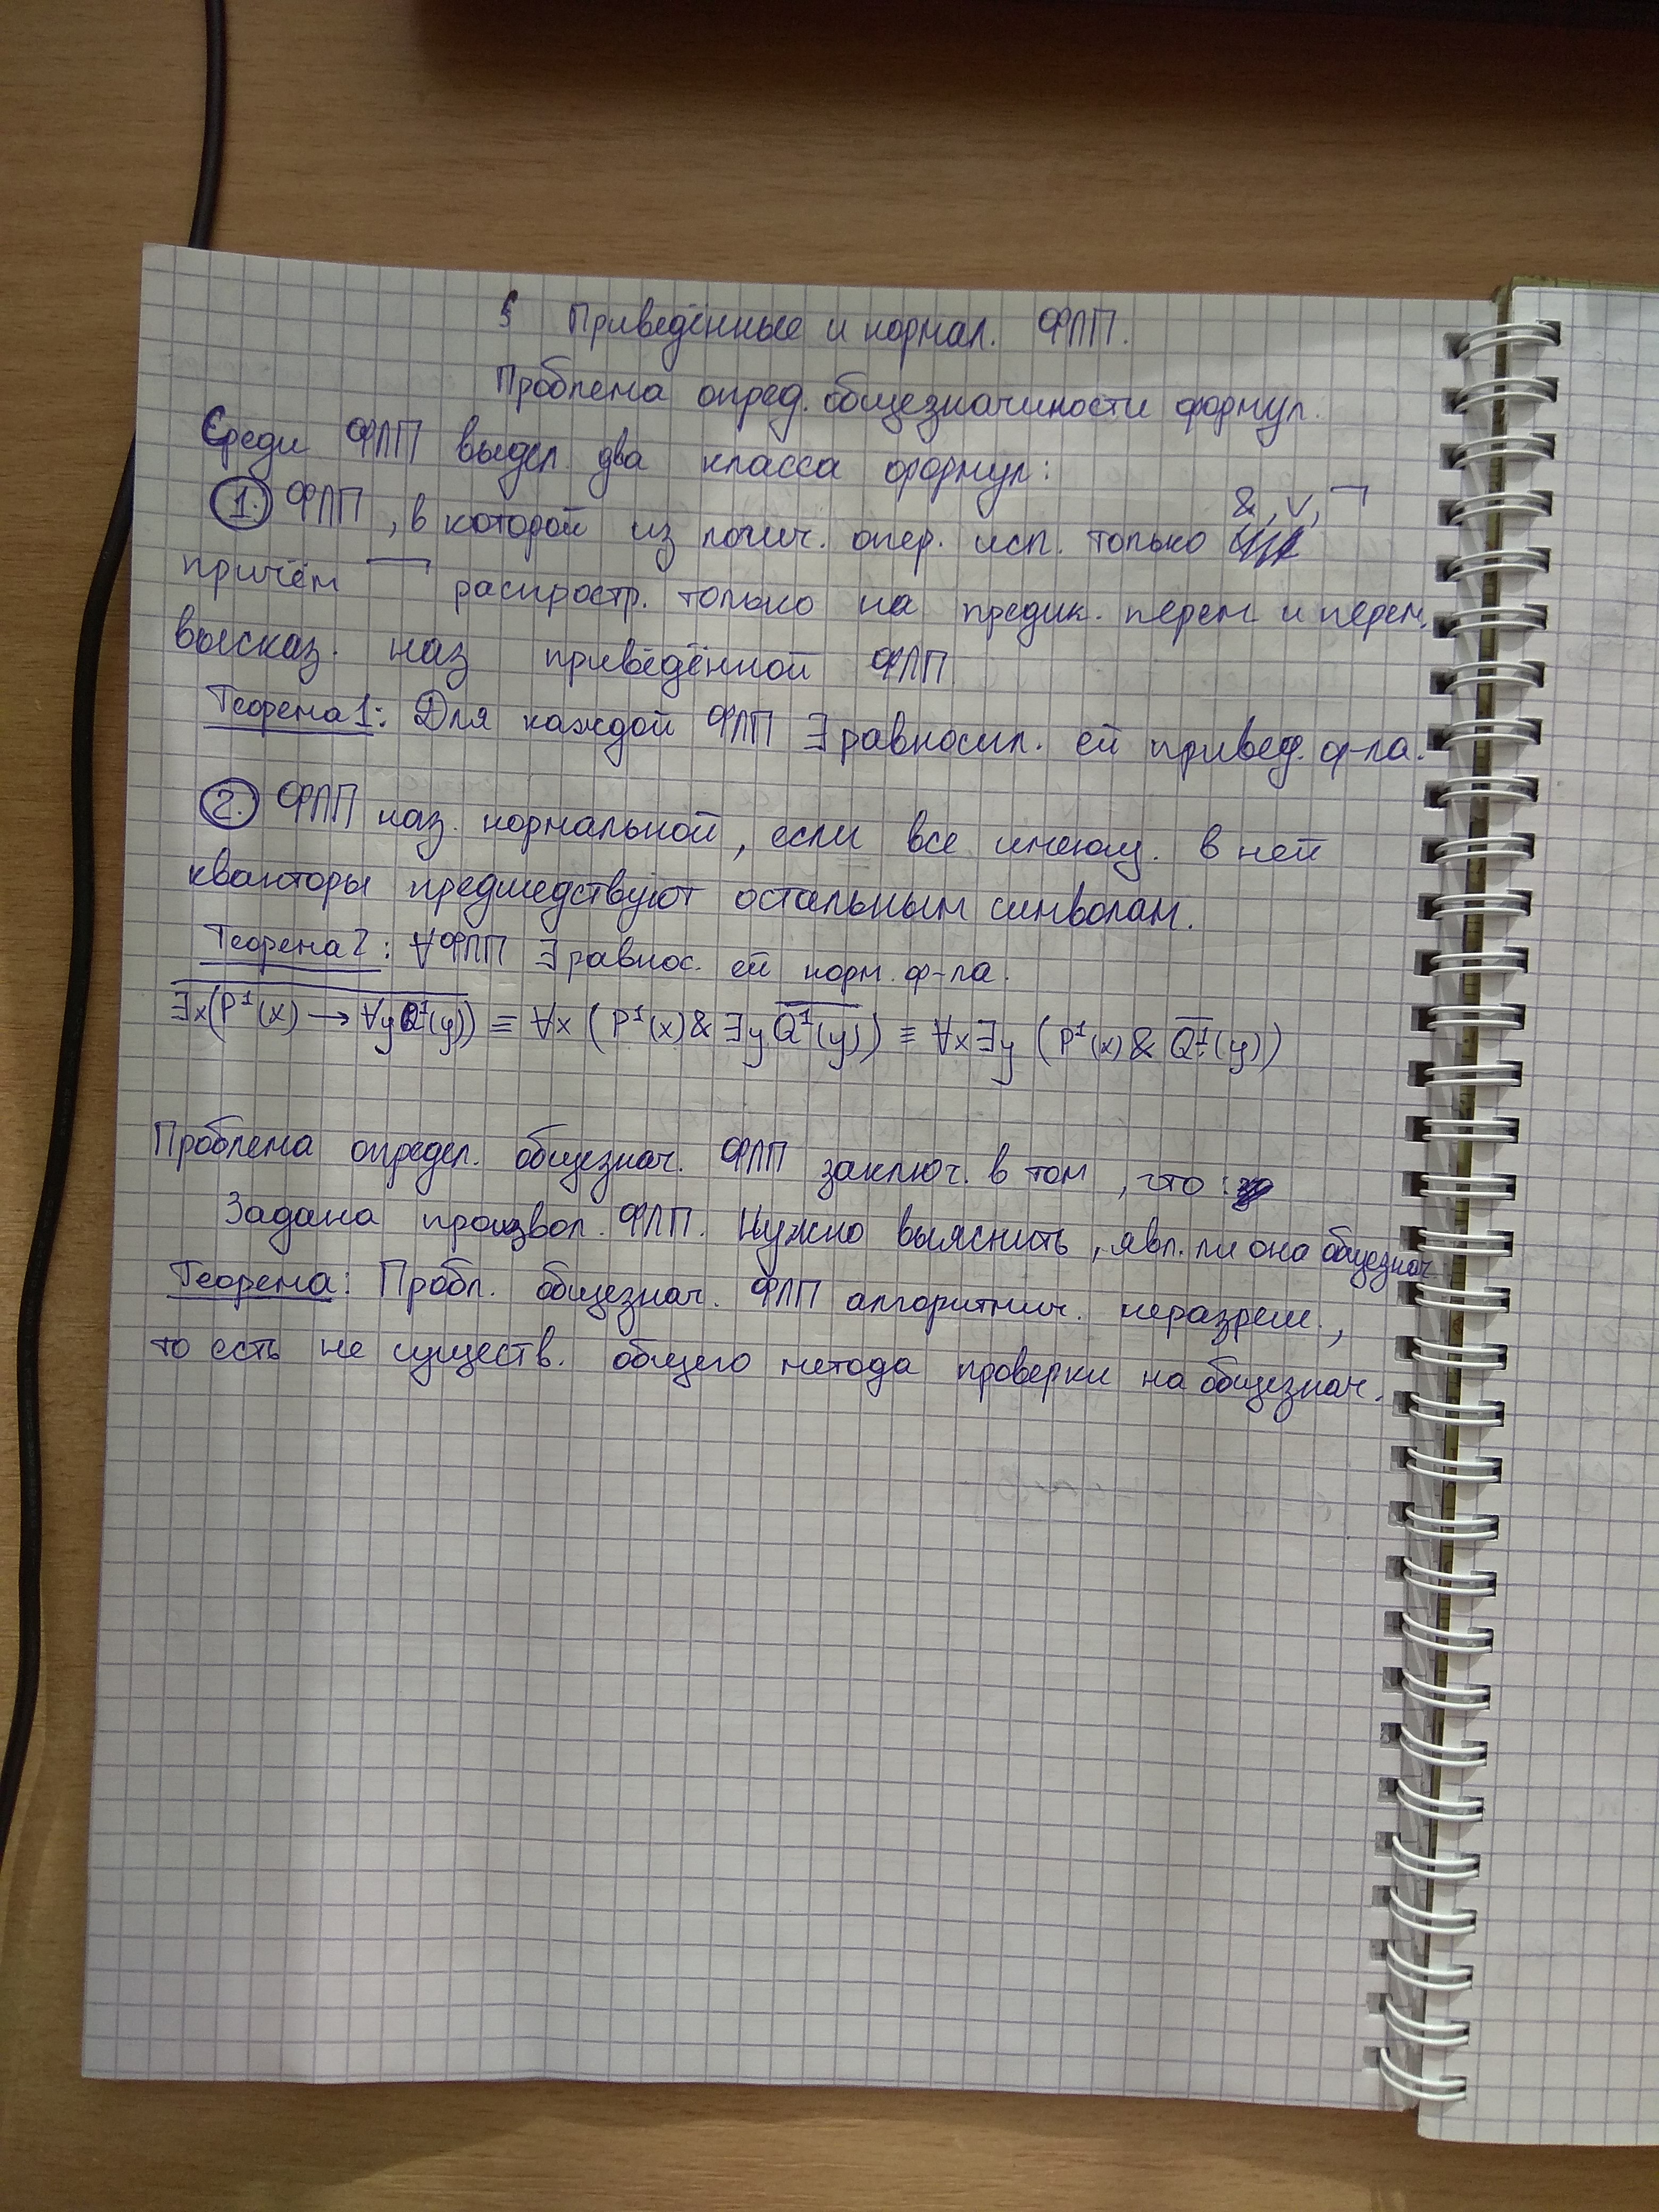 § Приведённые и нормал. ФЛП.
Проблема опред. общезначимости формул.
Среди ФЛП выдел. два класса формул:
1. ФЛП, в которой из логич. опер. исп. только &, ∨, ¬
причём ¯ распростр. только на предик. перем. и перем.
высказ. наз приведённой ФЛП
Теорема 1: Для каждой ФЛП ∃ равносил. ей привед. ф-ла.
2. ФЛП наз. нормальной, если все имеющ. в ней
кванторы предшедствуют остальным символам.
Теорема 2: ∀ФЛП ∃ равнос. ей норм. ф-ла.
\overline{∃x(P¹(x) → ∀yQ¹(y))} ≡ ∀x (P¹(x) & ∃y \overline{Q¹(y)}) ≡ ∀x∃y (P¹(x) & \overline{Q¹}(y))
Проблема определ. общезнач. ФЛП заключ. в том, что:
Задана произвол. ФЛП. Нужно выяснить, явл. ли она общезнач
Теорема: Пробл. общезнач. ФЛП алгоритмич. неразреш.,
то есть не существ. общего метода проверки на общезнач.